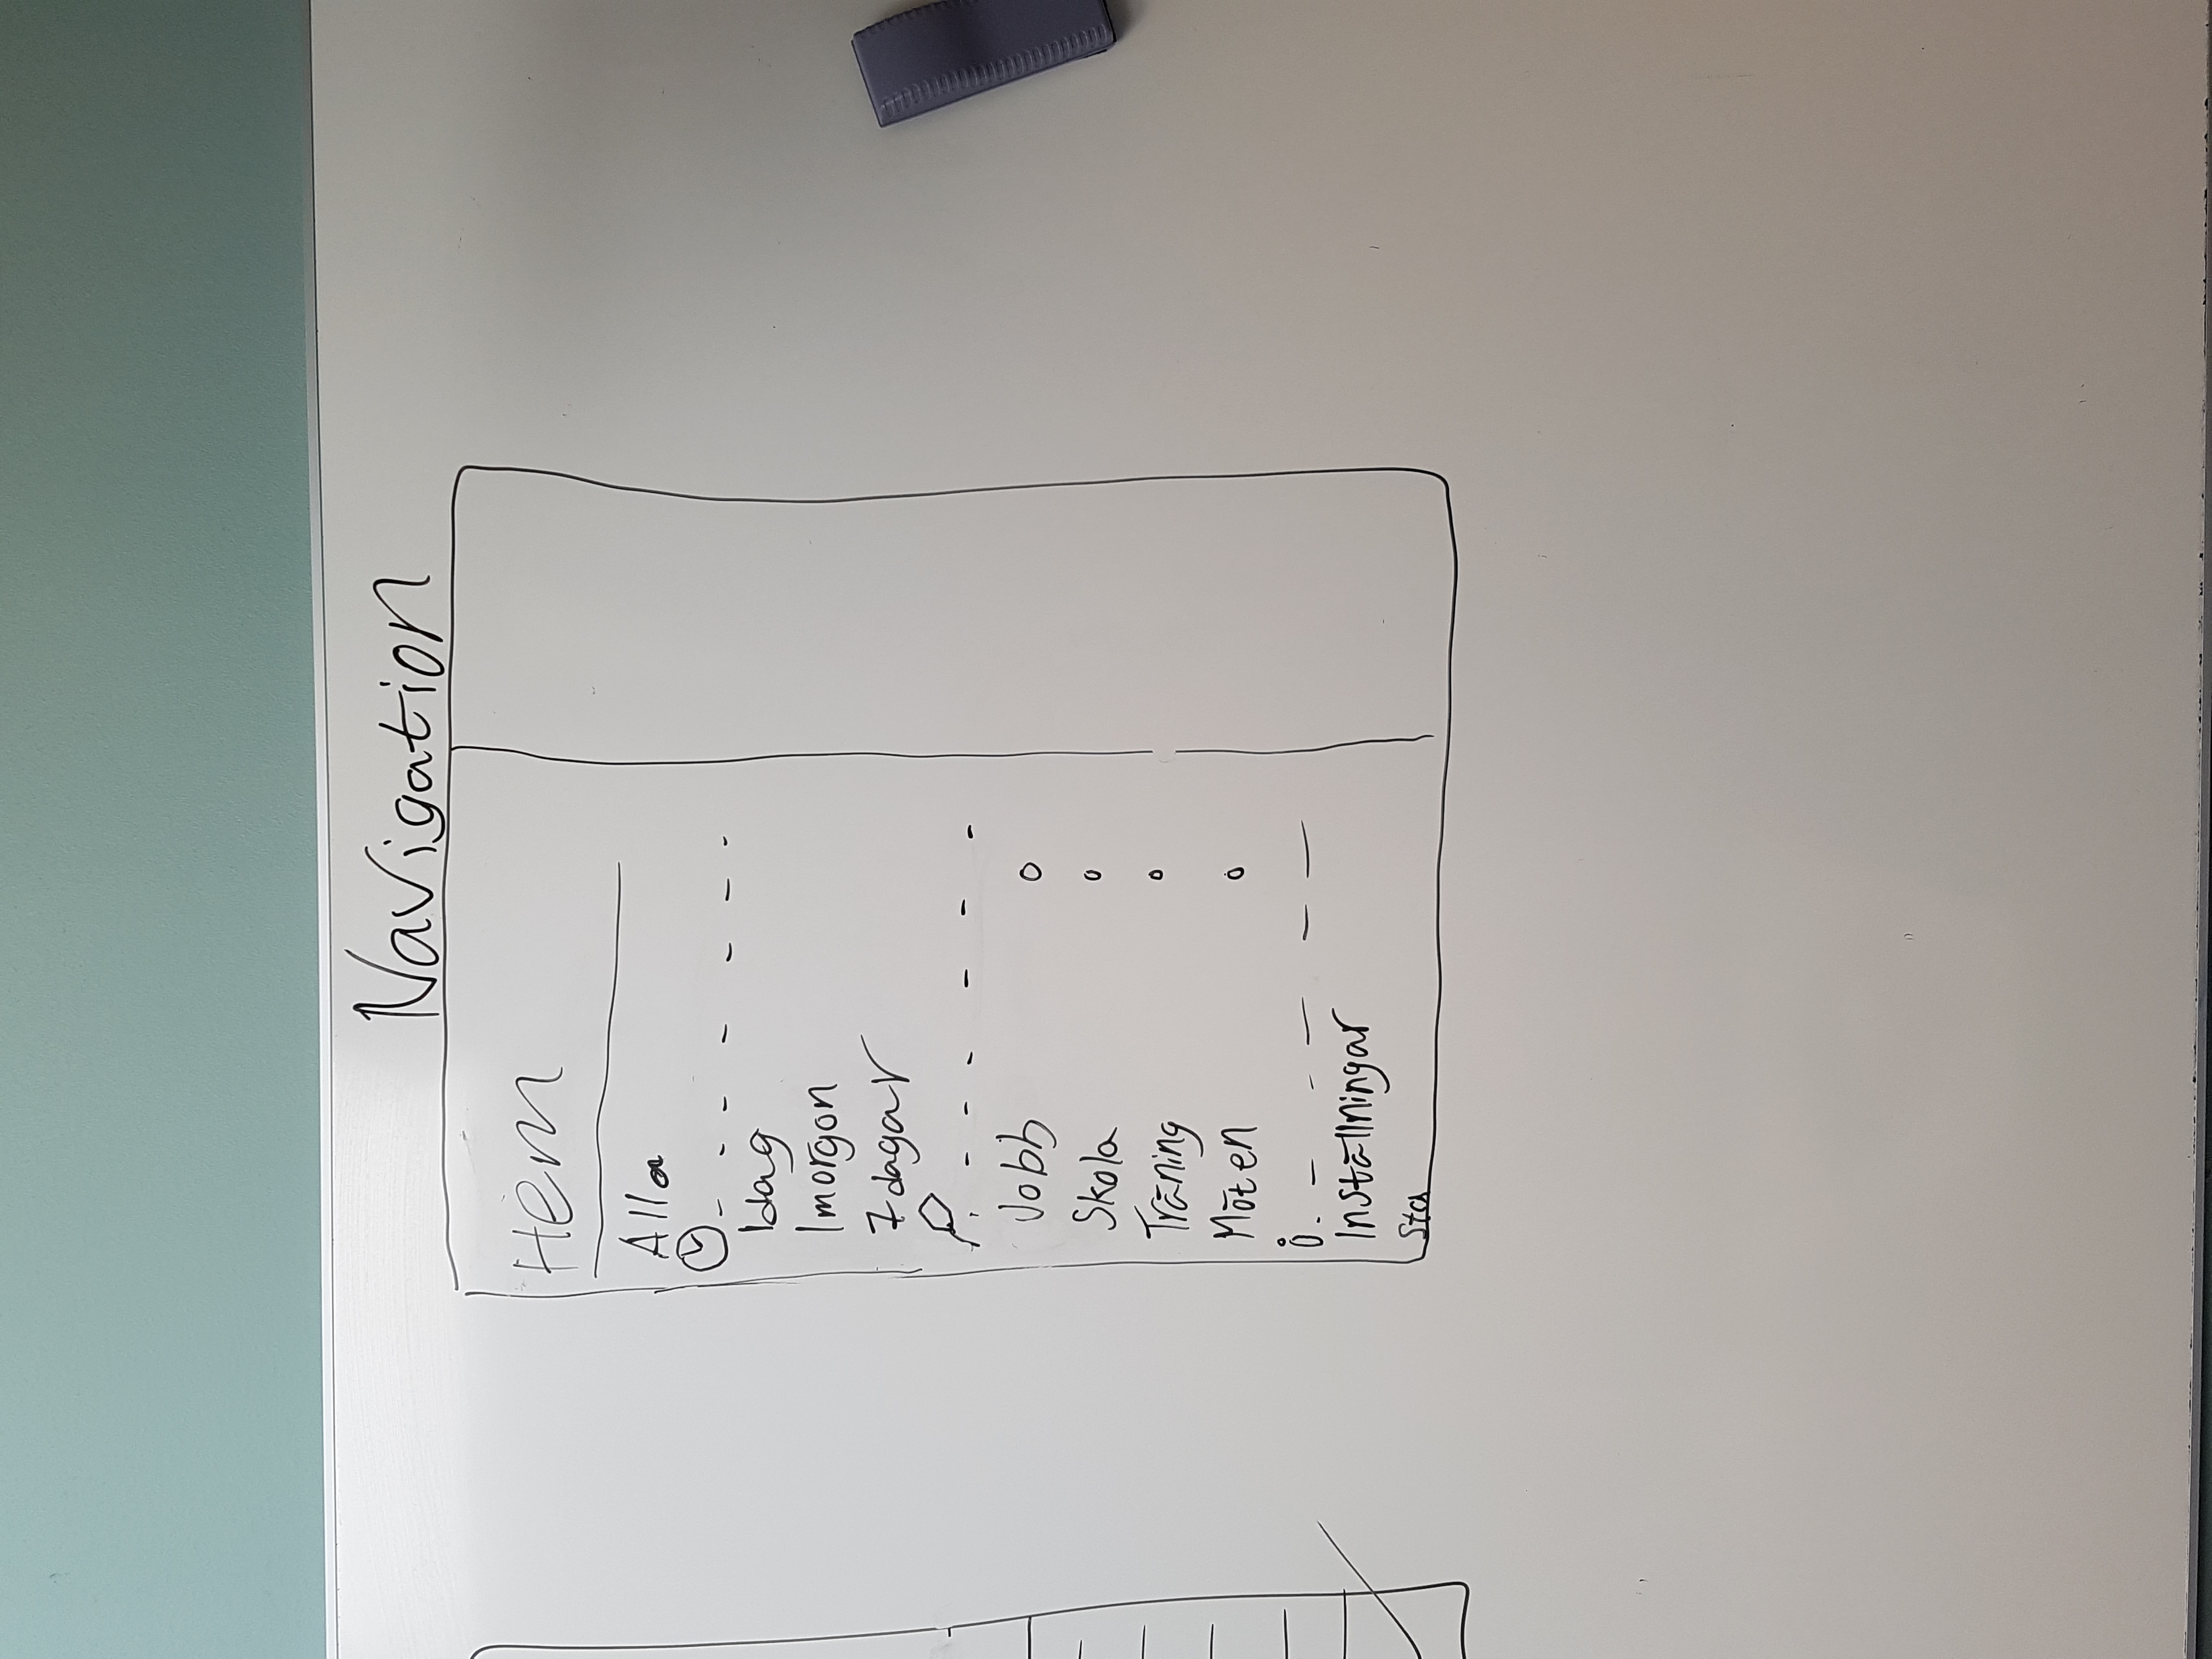 Navigation
Hem
Alla
Idag
Imorgon
7 dagar
Jobb
Skola
Träning
Möten
Inställningar
Sta